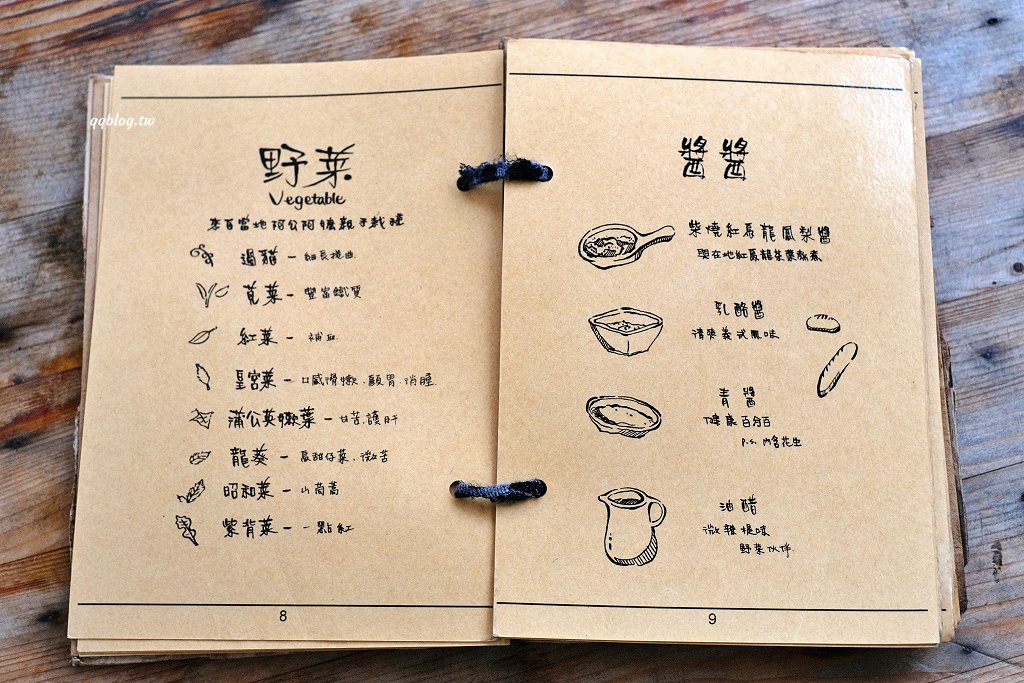 qqblog.tw
野菜
Vegetable
來自當地阿公阿嬤親手栽種
過貓 - 細長捲曲
莧菜 - 豐富鐵質
紅菜 - 補血
皇宮菜 - 口感滑嫩、顧胃、消腫
蒲公英嫩葉 - 甘苦、護肝
龍葵 - 烏甜仔菜、微苦
昭和菜 - 山茼蒿
紫背菜 - 一點紅
8
醬醬
柴燒紅烏龍鳳梨醬
現在地紅烏龍茶葉熬煮
乳酪醬
清爽義式風味
青醬
健康百分百
p.s. 內含花生
油醋
微辣提味
野菜伙伴
9